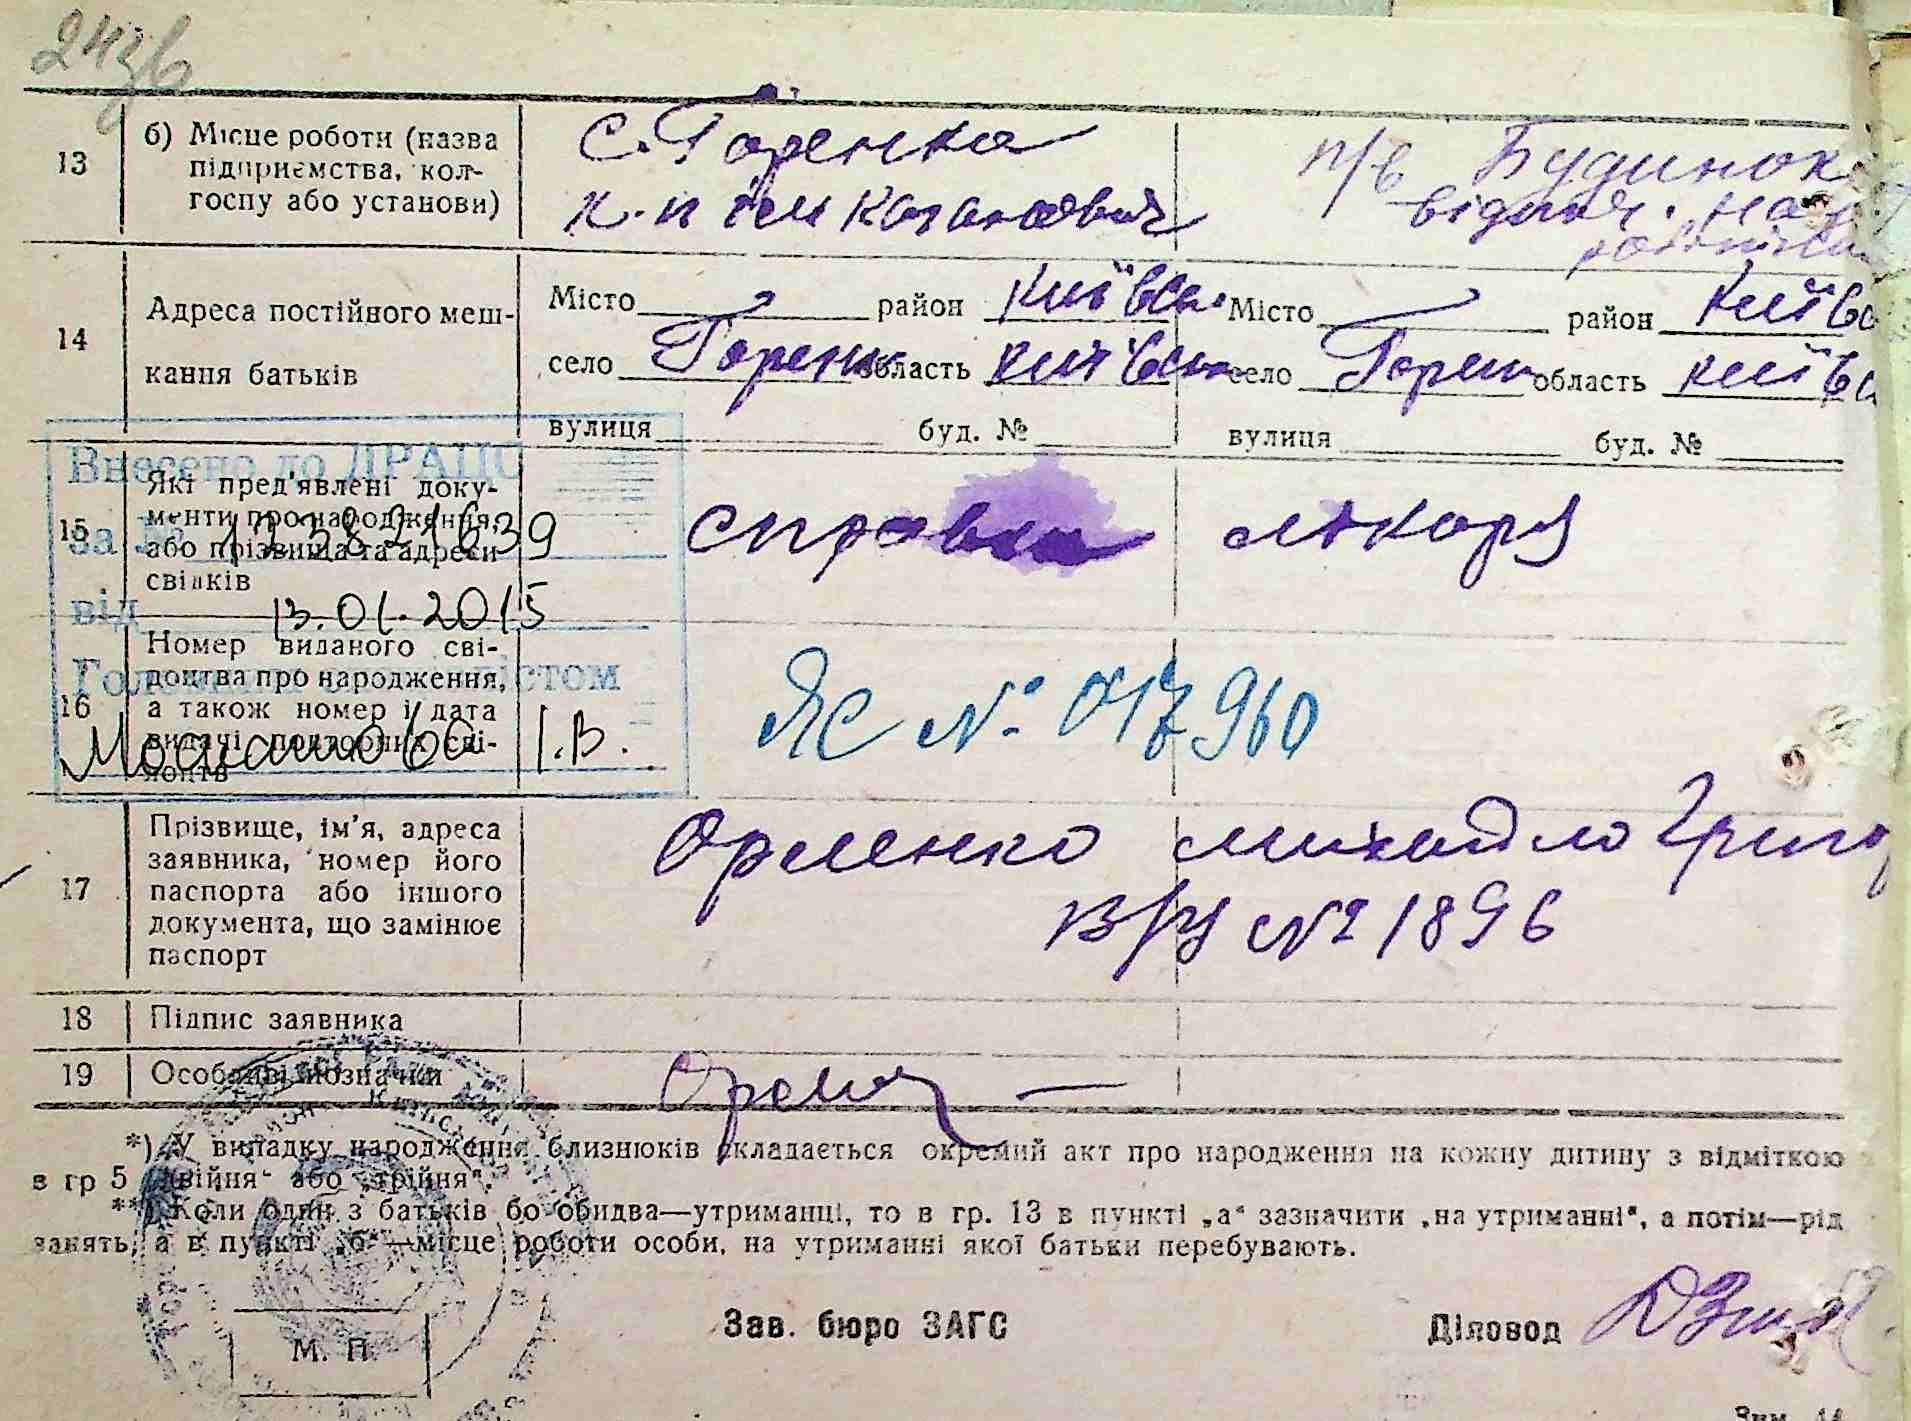 2436
13
б) Місце роботи (назва
підприємства, кол-
госпу або установи)
с. Горенка
к-п ім Кагановича
п/в Будинок
відпоч.
14
Адреса постійного меш-
кання батьків
Місто район Київськ
село Горенк область Київськ
вулиця буд. №
Місто район Київс
село Горен область Київс
вулиця буд. №
15
Які пред'явлені доку-
менти про народження,
або прізвища та адреси
свідків
справка лікаря
Внесено до ДРАЦС
за №
від 13.01.2015
Головним спеціалістом
І.В.
16
Номер виданого сві-
доцтва про народження,
а також номер і дата
видачі повторних сві-
доцтв
ЯС № 017960
17
Прізвище, ім'я, адреса
заявника, номер його
паспорта або іншого
документа, що замінює
паспорт
Орленко Михайло Григор
№ 1896
18
Підпис заявника
19
Особливі позначки
*) У випадку народження близнюків складається окремий акт про народження на кожну дитину з відміткою
в гр 5 „двійня“ або „трійня“.
**) Коли один з батьків бо обидва—утриманці, то в гр. 13 в пункті „а“ зазначити „на утриманні“, а потім—рід
занять, а в пункті „б“—місце роботи особи, на утриманні якої батьки перебувають.
М. П.
Зав. бюро ЗАГС
Діловод